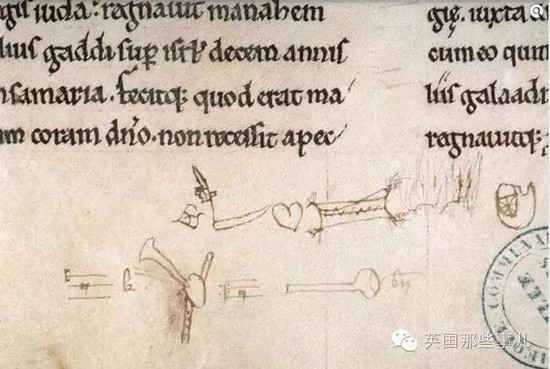 gis iuda: regnavit manahem
lius gaddi sup isrl decem annis
n samaria. fecitq; quod erat ma
m coram dño. non recessit a pec
gię. iuxta
cum eo quin
liis galaadi
regnavitq;
COMMUNA
英国那些事儿